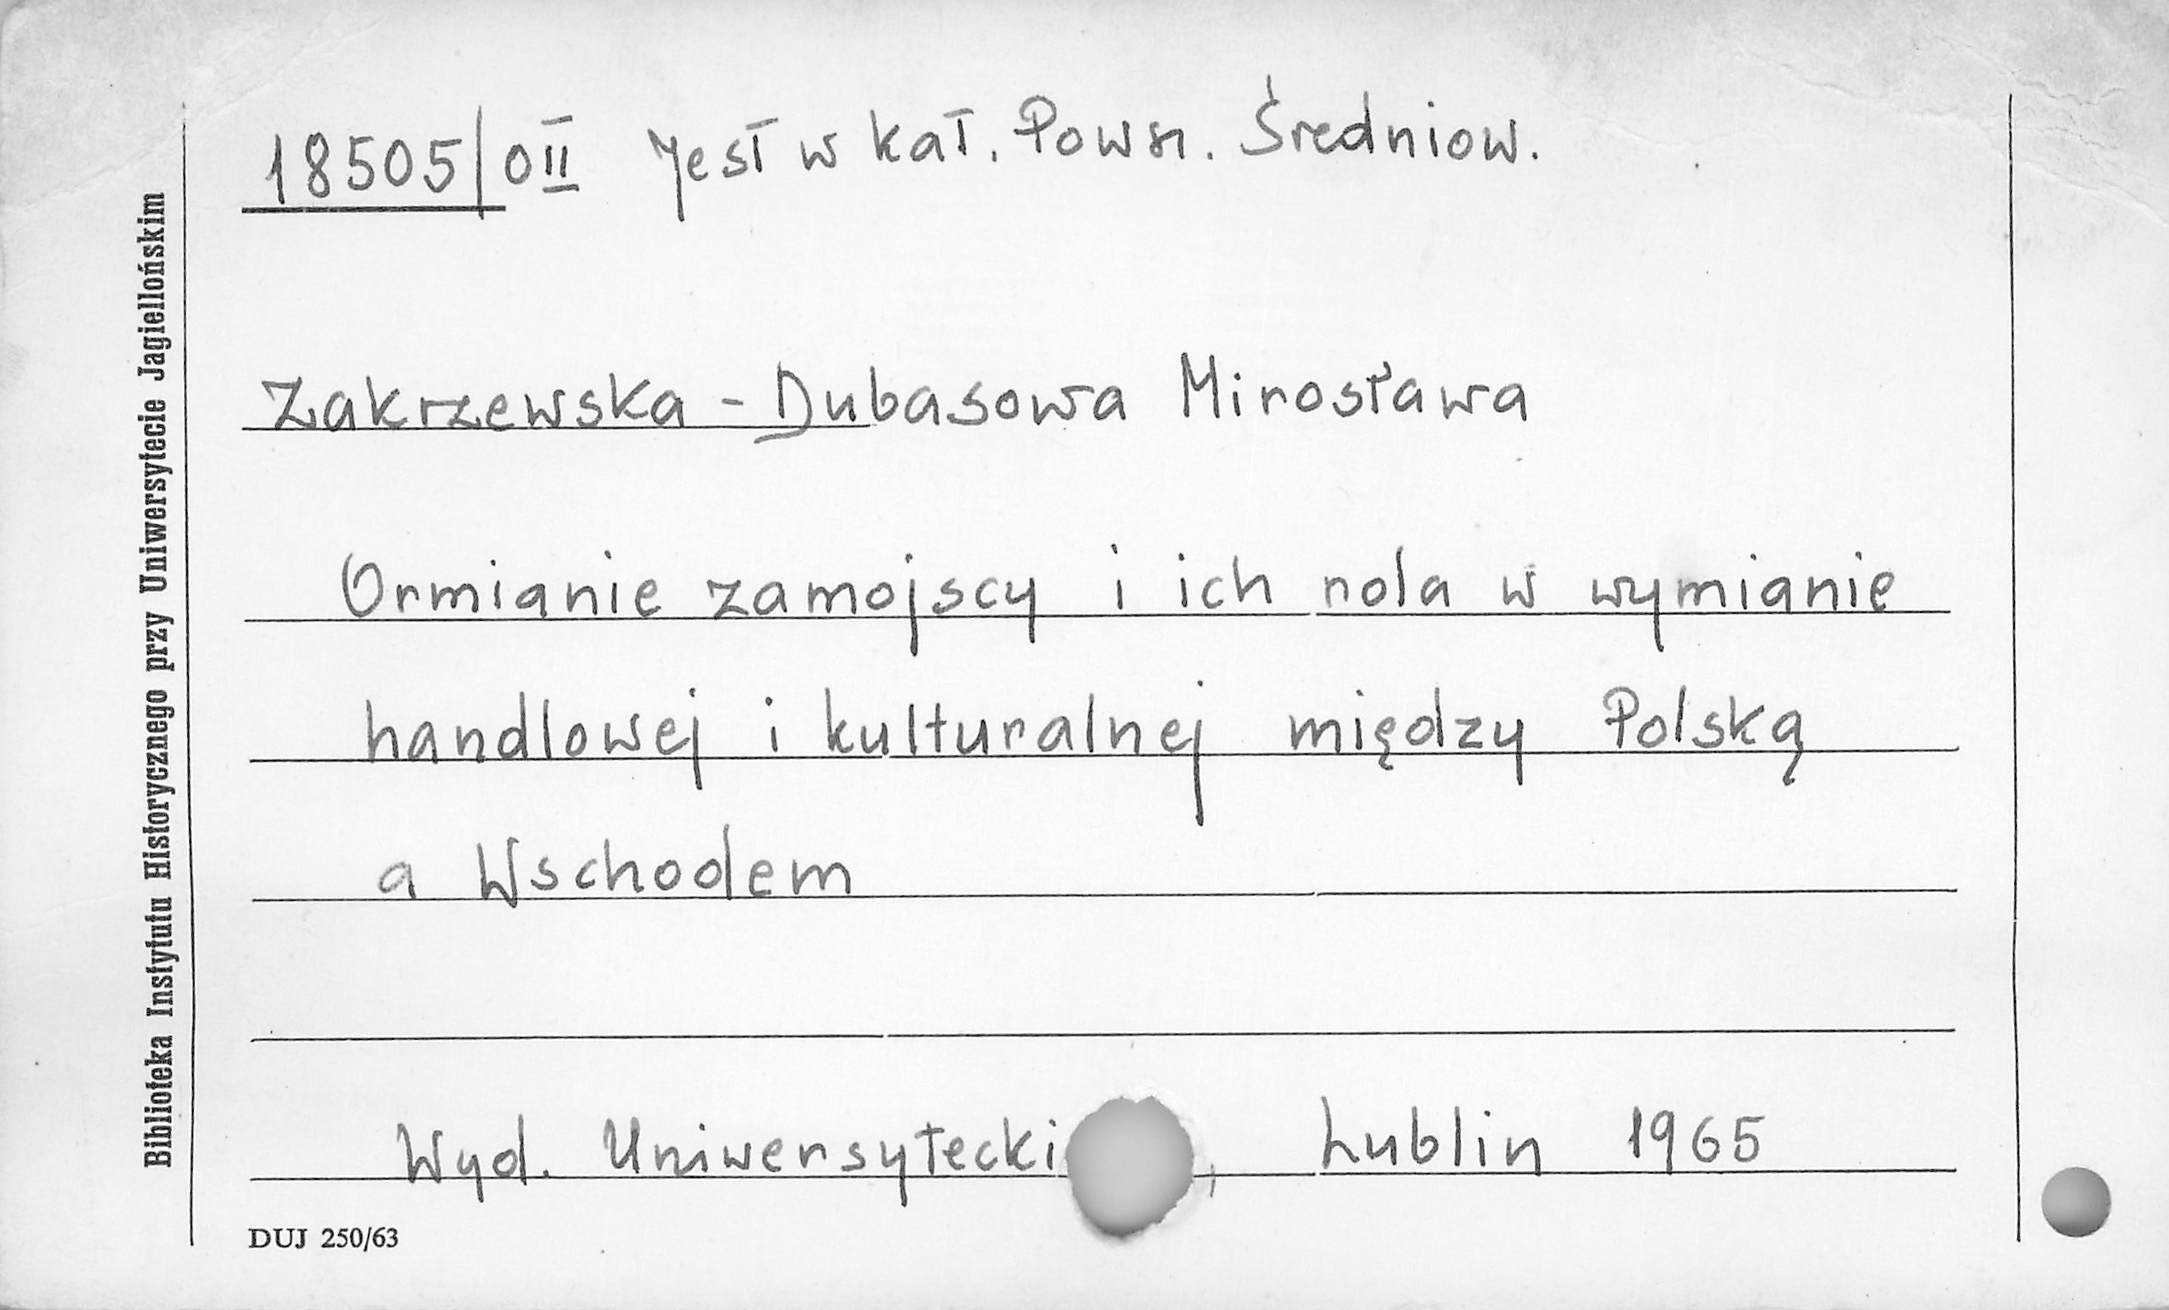 18505/0II Jest w kat. Powsz. Średniow.
Zakrzewska-Dubasowa Mirosława
Ormianie zamojscy i ich rola w wymianie
handlowej i kulturalnej między Polską
a Wschodem
Wyd. Uniwersytecki , Lublin 1965
DUJ 250/63
Biblioteka Instytutu Historycznego przy Uniwersytecie Jagiellońskim